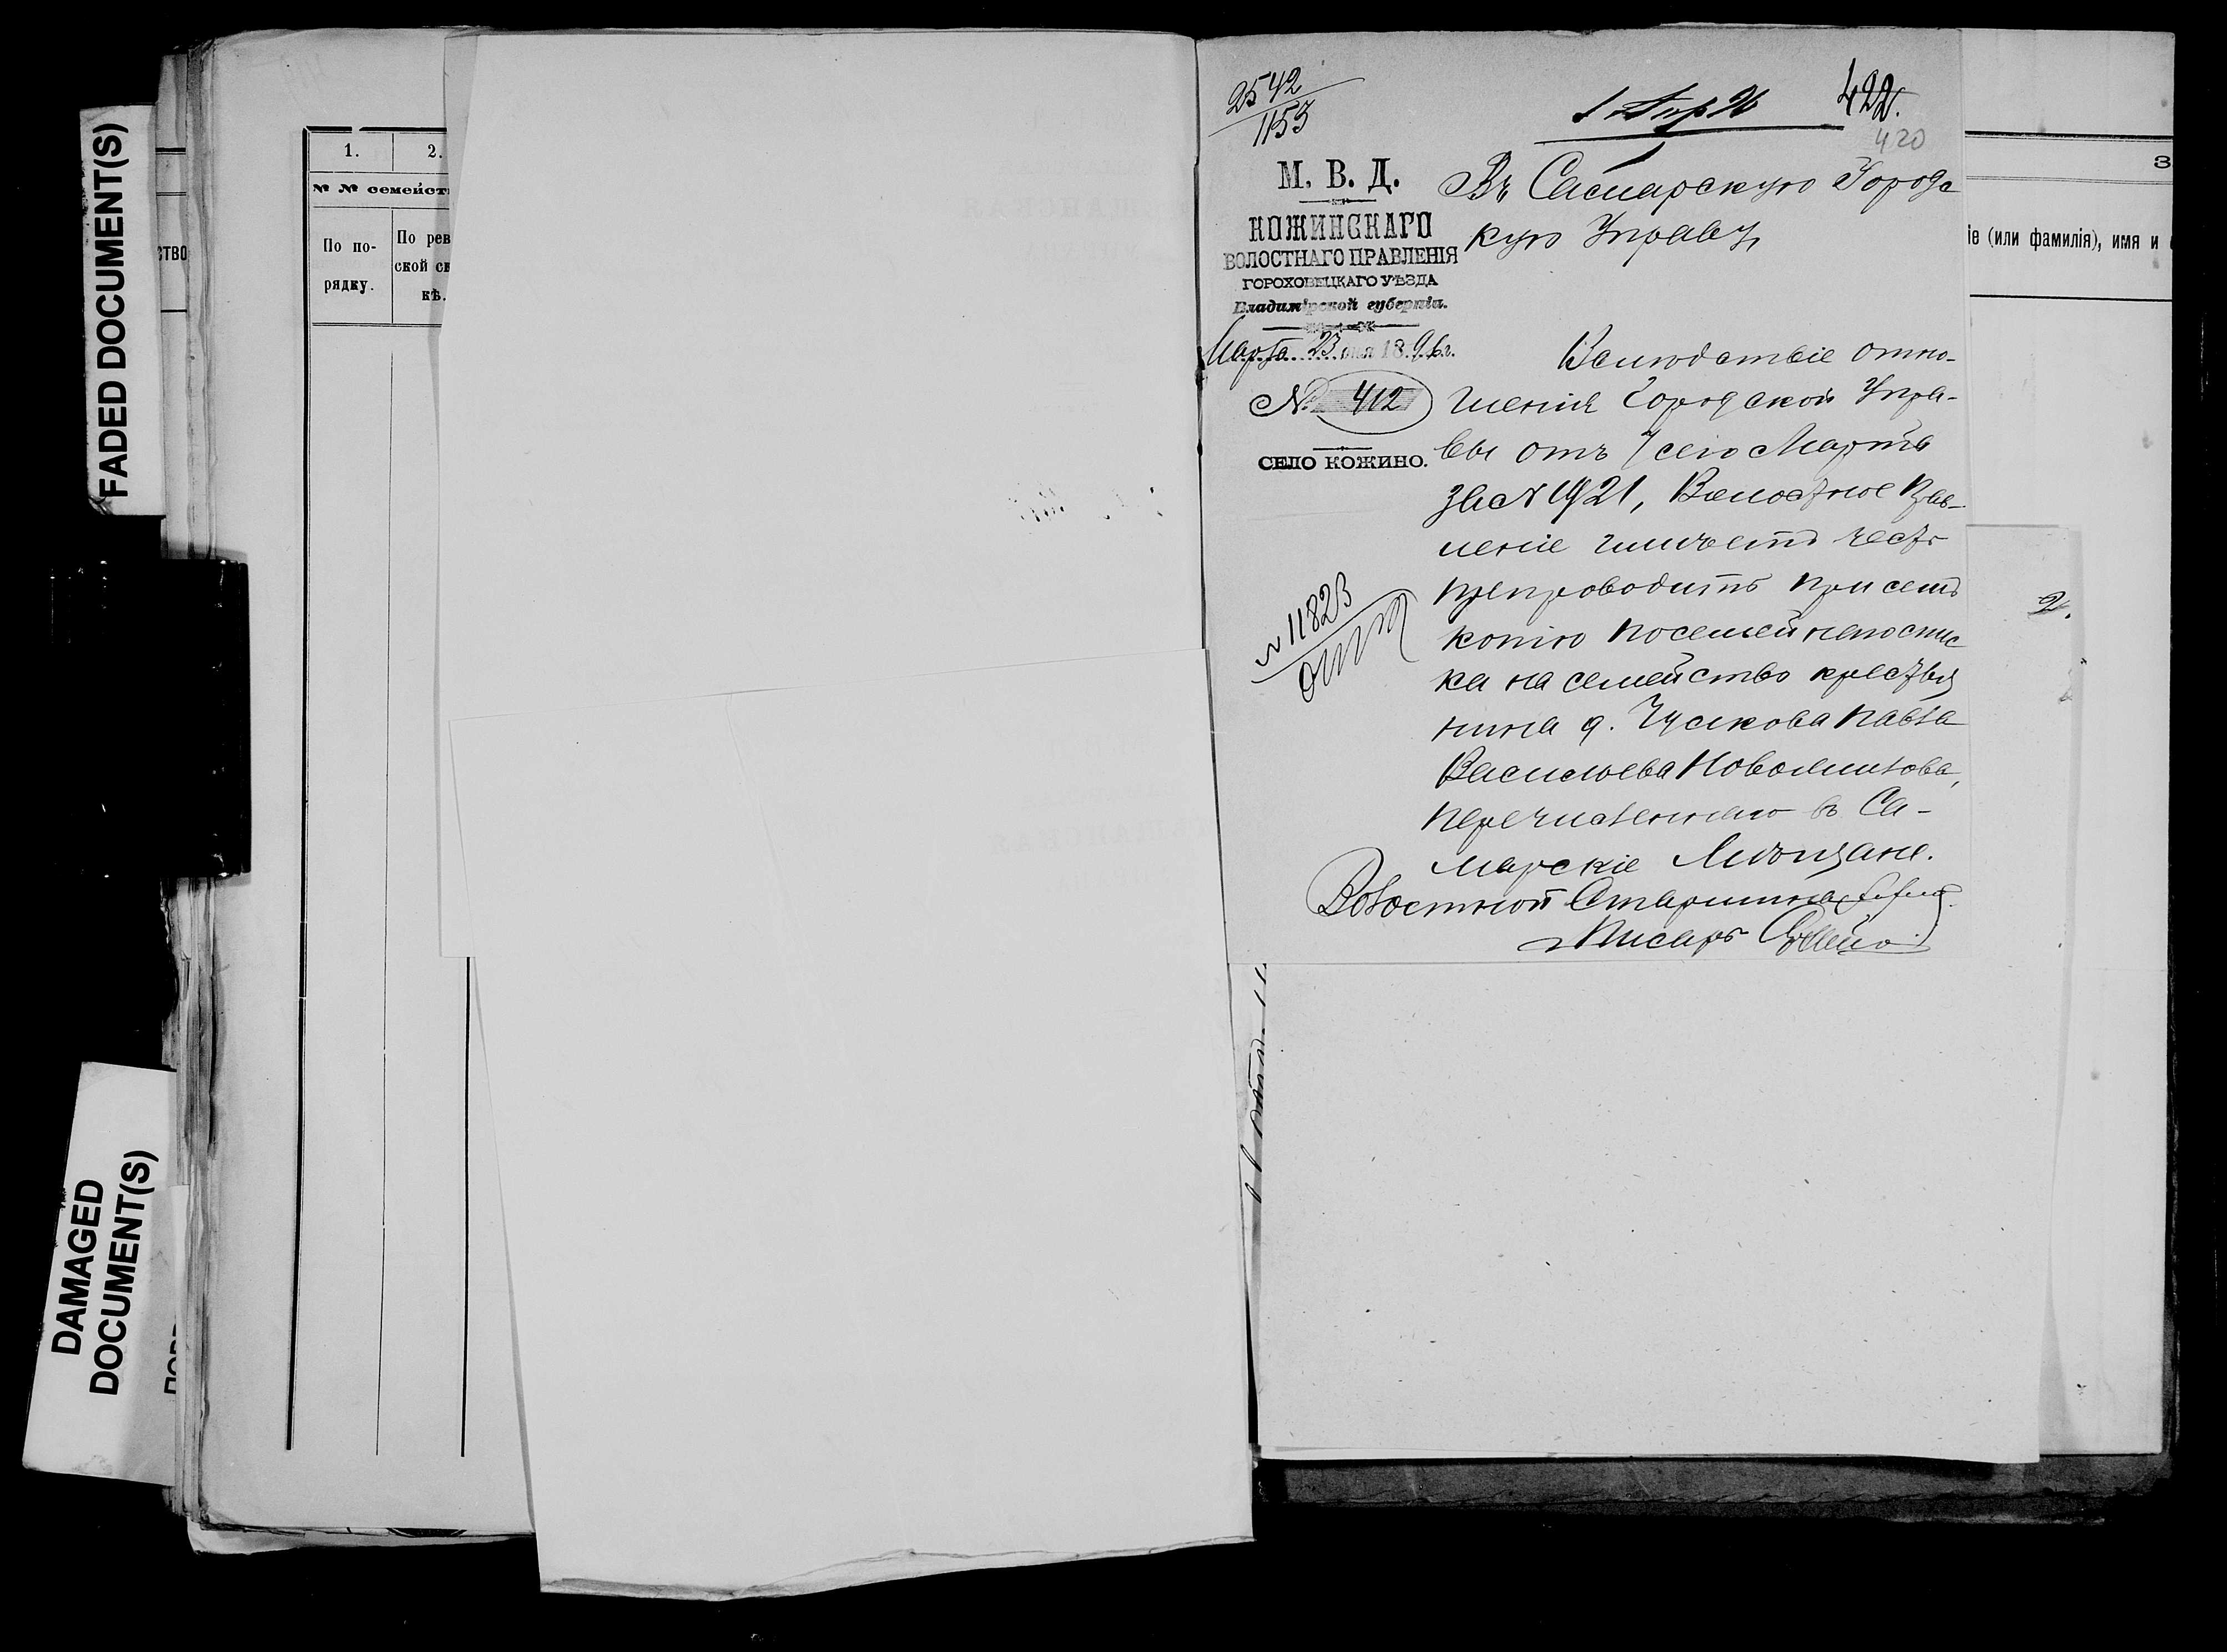 FADED DOCUMENT(S)
DAMAGED
DOCUMENT(S)
СТВО
1.
2.
№ № семейст
По по-
рядку.
По рев
ской ск
кѣ.
2542
1153
1 Апр 96
422.
420
М. В. Д.
КОЖИНСКАГО
ВОЛОСТНАГО ПРАВЛЕНІЯ
ГОРОХОВЕЦКАГО УѢЗДА
Владимірской губерніи.
Марта 23 дня 1896 г.
№ 412
СЕЛО КОЖИНО.
Въ Самарскую Городс
кую Управу
Вслѣдствіе отно-
шенія Городской Упра-
вы отъ 7 сего Марта
за № 1921, Волостное Прав-
леніе имѣетъ честь
препроводить при семъ
копію посемейнаго спис
ка на семейство крестья
нина д. Гуськова Павла
Васильева Новожилова,
перечисленнаго въ Са-
марскіе Мѣщане.
Волостной Старшина
Писарь
№ 11823
З
іе (или фамилія), имя и
2.